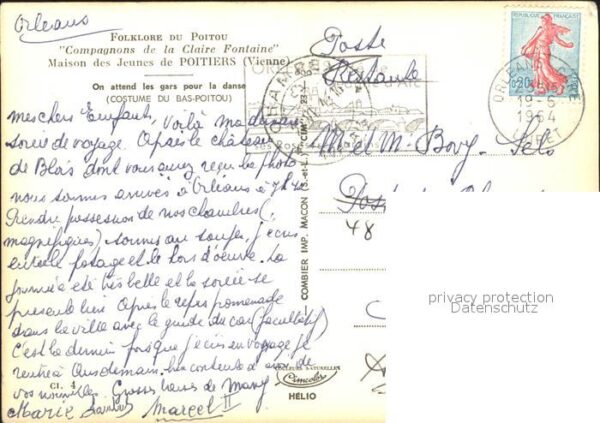 Orléans
FOLKLORE DU POITOU
"Compagnons de la Claire Fontaine"
Maison des Jeunes de POITIERS (Vienne)
On attend les gars pour la danse
(COSTUME DU BAS-POITOU)
Mes chers Enfants, Voilà ma dernière
soirée de voyage. Après le château
de Blois dont vous avez reçu la photo
nous sommes arrivés à Orléans à
Prendre possession de nos chambres (
magnifiques) sommes au souper, j'écris
entre le potage et le hors d'oeuvre. La
journée a été très belle et la soirée se
présente bien. Après le repas promenade
dans la ville avec le guide du car (facultatif)
C'est la dernière fois que j'écris en voyage je
rentre demain. contente d'avoir de
vos nouvelles. Grosses bises de Mamy
Marie Marcel II
Cl. 4
Poste
Restante
REPUBLIQUE FRANÇAISE
0,20
ORLEANS
19-5
1964
LOIRET
M et M. Bovy
48
COMBIER IMP. MACON (S.-et-L.) "CIM"
COULEURS NATURELLES
Cimcolor
HÉLIO
privacy protection
Datenschutz